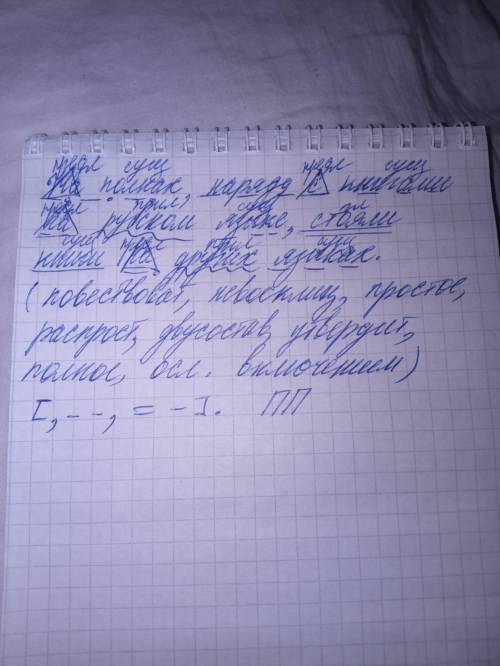 предл сущ предл сущ
На полках, наряду с книгами
предл прил сущ гл
на русском языке, стояли
сущ предл прил сущ
книги на других языках.
(повествоват, невосклиц, простое,
распрост, двусостав, утвердит,
полное, осл. включением)
[, – –, = –]. ПП